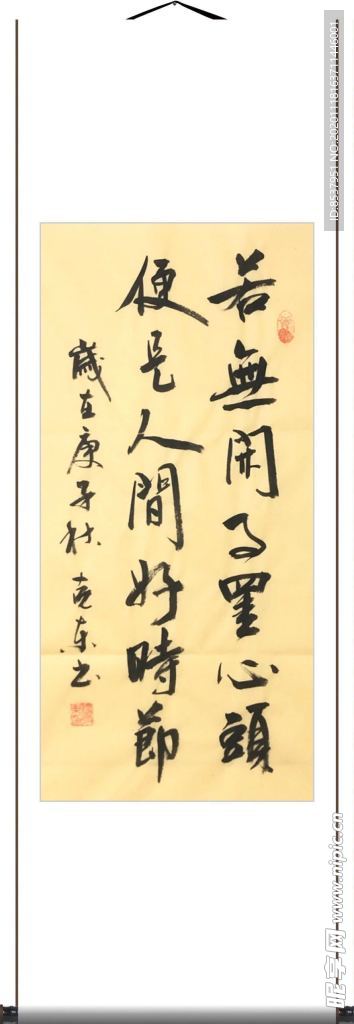 若無閑事罣心頭
便是人間好時節
歲在庚子秋 克东书
ID:8537951 NO:20201118163711446001
昵享网 www.nipic.cn